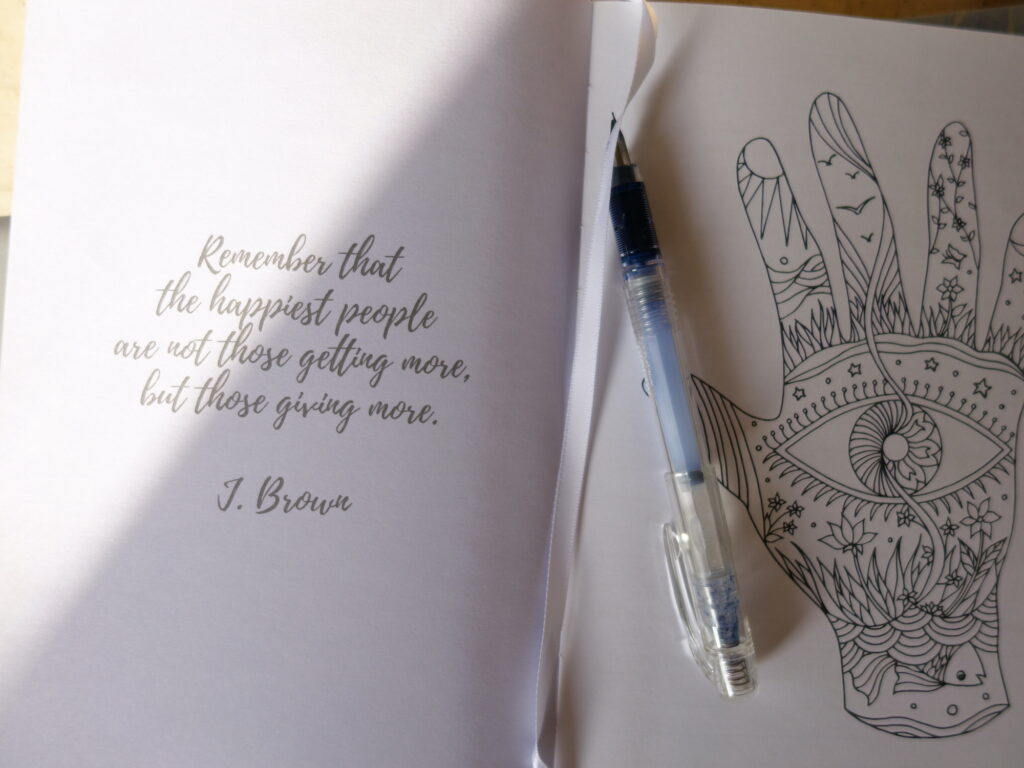 Remember that
the happiest people
are not those getting more,
but those giving more.
J. Brown